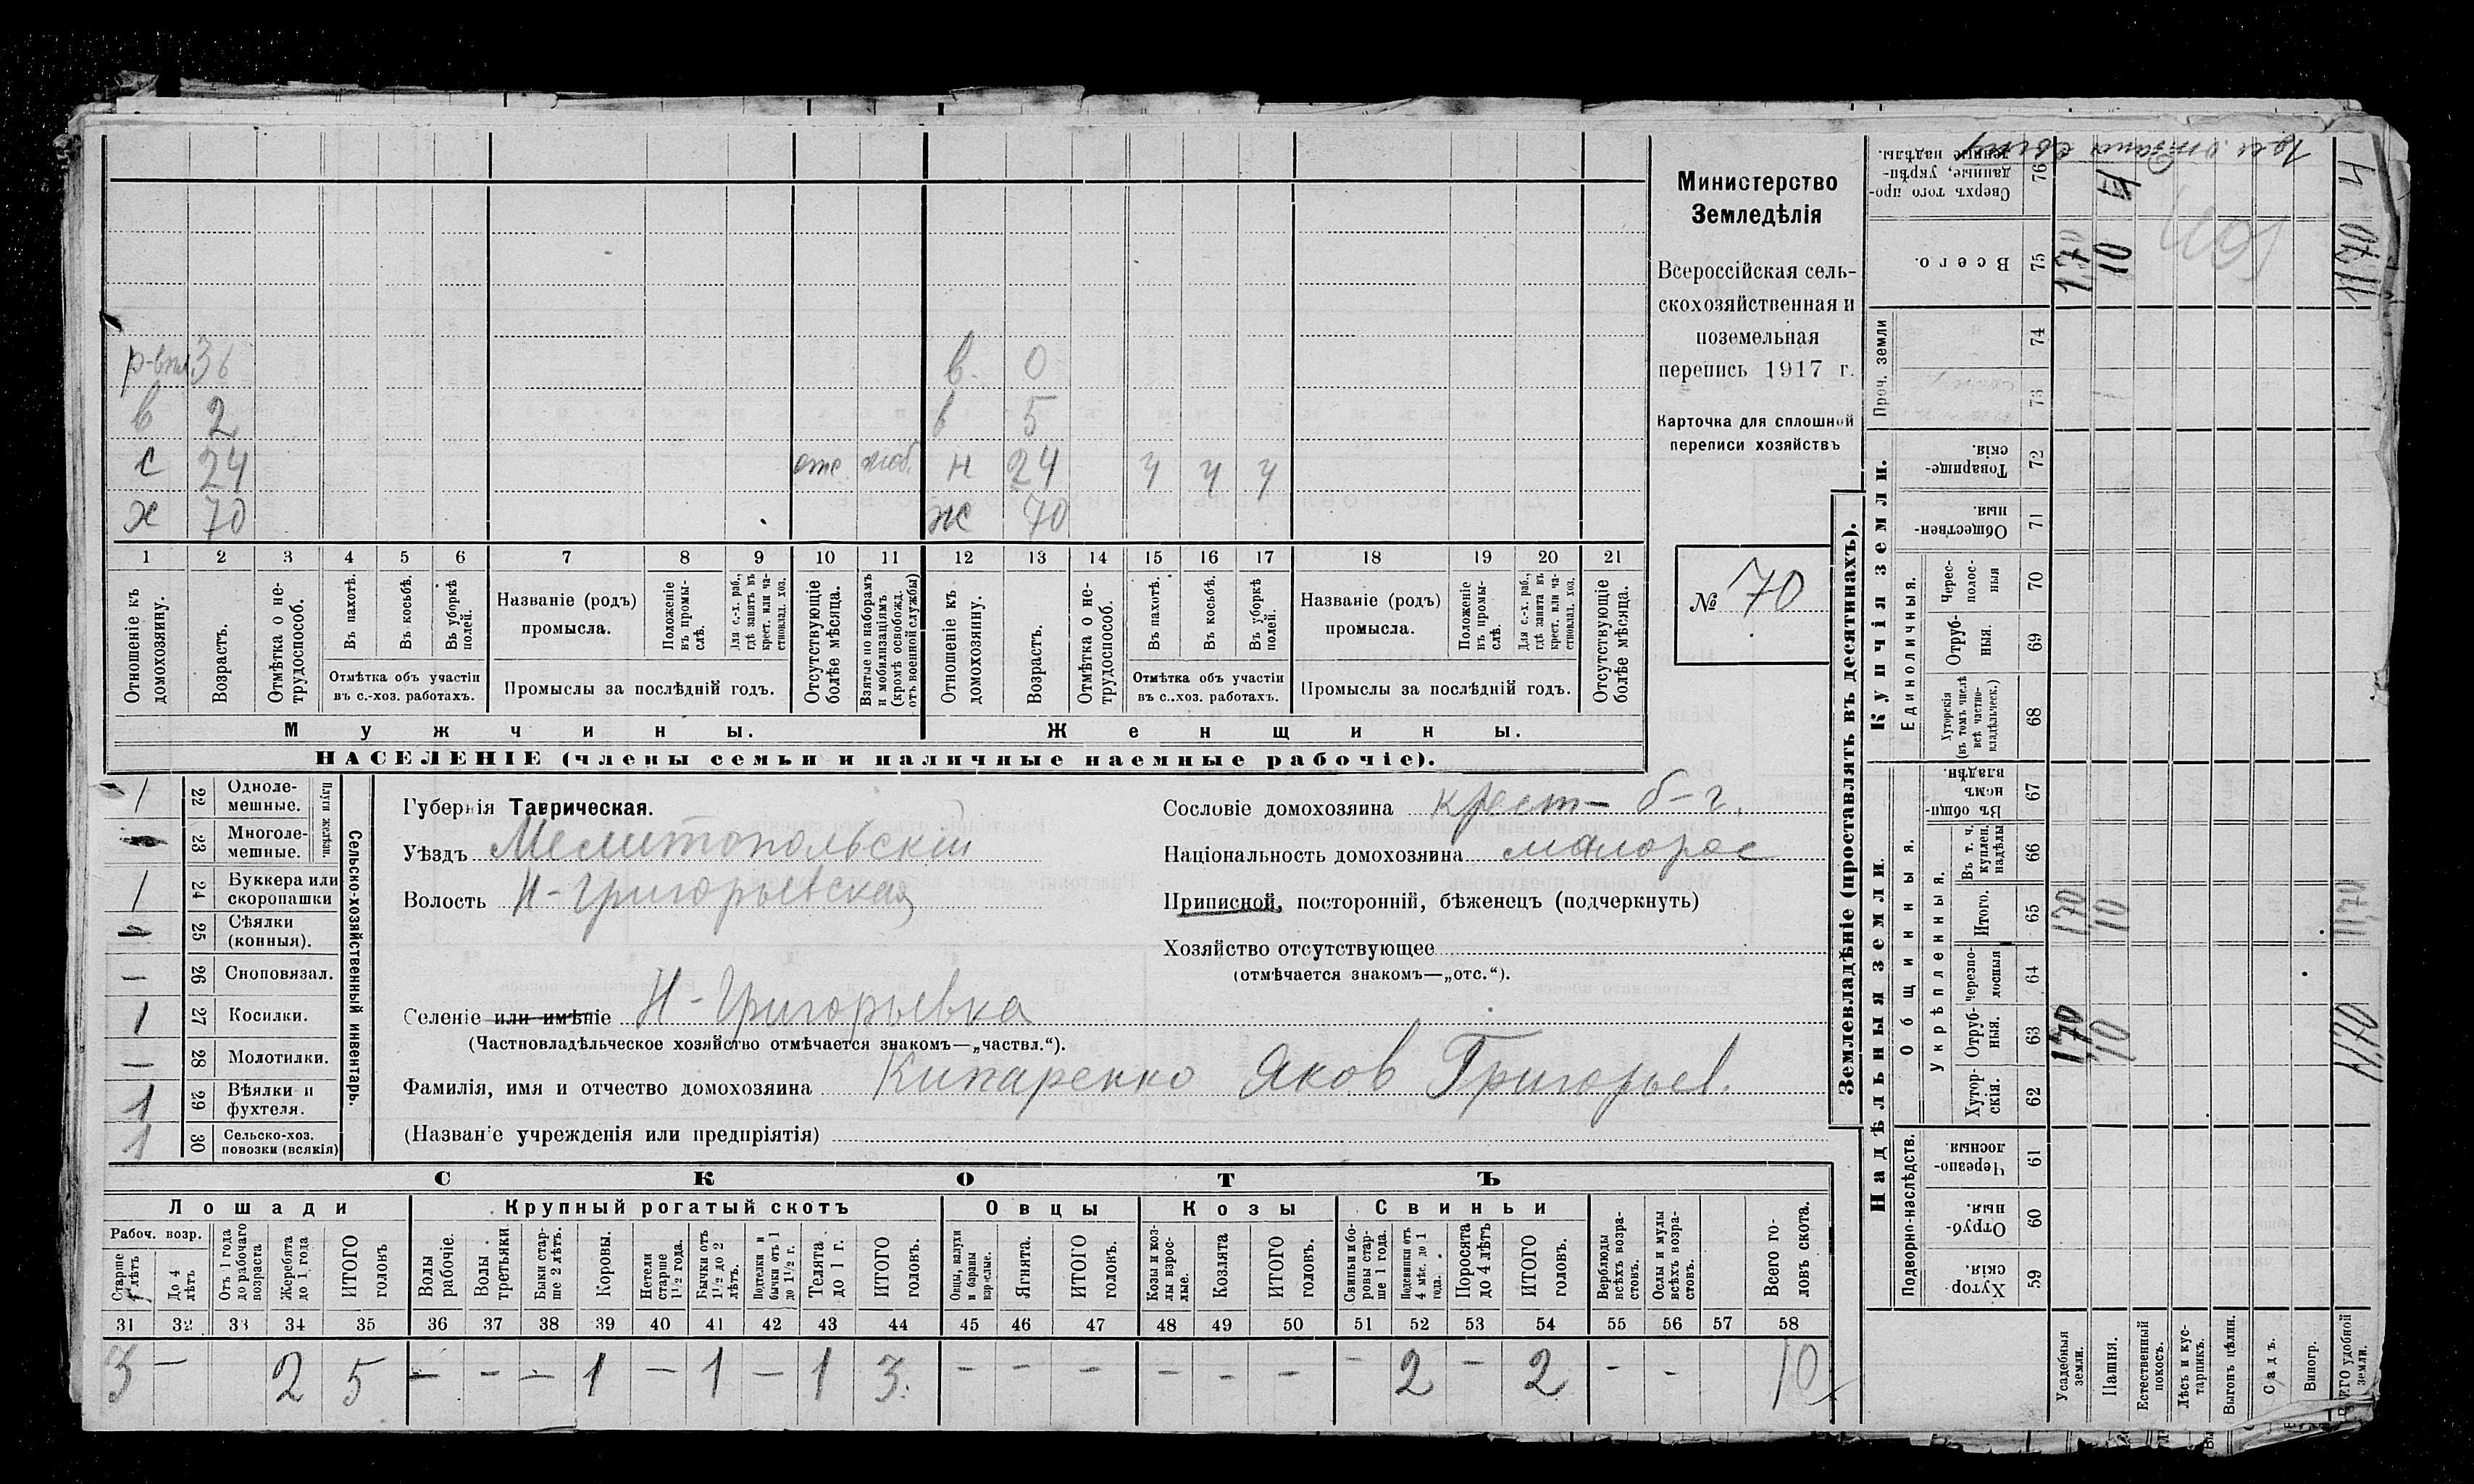 Министерство
Земледѣлія
Всероссійская сель-
скохозяйственная и
поземельная
перепись 1917 г.
Карточка для сплошной
переписи хозяйствъ
№ 70
р-впл. 36 в. 0
в 2 в 5
с 24 отс моб. н 24 ч ч ч
х 70 ж 70
1 2 3 4 5 6 7 8 9 10 11 12 13 14 15 16 17 18 19 20 21
Отношеніе къ домохозяину.
Возрастъ.
Отмѣтка о не-трудоспособ.
Въ пахотѣ.
Въ косьбѣ.
Въ уборкѣ полей.
Отмѣтка объ участіи
въ с.-хоз. работахъ.
Названіе (родъ)
промысла.
Положеніе въ промы-слѣ.
Для с.-х. раб., гдѣ занятъ въ крест. или ча-стновлад. хоз.
Промыслы за послѣдній годъ.
Отсутствующіе болѣе мѣсяца.
Взятые по наборамъ и мобилизаціямъ (кромѣ освобожд. отъ военной службы)
Отношеніе къ домохозяину.
Возрастъ.
Отмѣтка о не-трудоспособ.
Въ пахотѣ.
Въ косьбѣ.
Въ уборкѣ полей.
Отмѣтка объ участіи
въ с.-хоз. работахъ.
Названіе (родъ)
промысла.
Положеніе въ промы-слѣ.
Для с.-х. раб., гдѣ занята въ крест. или ча-стновлад. хоз.
Промыслы за послѣдній годъ.
Отсутствующіе болѣе мѣсяца.
Мужчины. Женщины.
НАСЕЛЕНІЕ (члены семьи и наличные наемные рабочіе).
Сельско-хозяйственный инвентарь.
Плуги желѣзн.
1 22 Одноле-мешные.
23 Многоле-мешные.
1 24 Буккера или скоропашки
25 Сѣялки (конныя).
— 26 Сноповязал.
1 27 Косилки.
— 28 Молотилки.
1 29 Вѣялки и фухтеля.
1 30 Сельско-хоз. повозки (всякія)
Губернія Таврическая.
Уѣздъ Мелитопольскій
Волость Н-Григорьевская
Селеніе или имѣніе Н-Григорьевка
(Частновладѣльческое хозяйство отмѣчается знакомъ—„частвл.“).
Фамилія, имя и отчество домохозяина Кипаренко Яков Григорьев.
(Названіе учрежденія или предпріятія)
Сословіе домохозяина крест- б-г.
Національность домохозяина малорос
Приписной, посторонній, бѣженецъ (подчеркнуть)
Хозяйство отсутствующее
(отмѣчается знакомъ—„отс.“).
СКОТЪ
Лошади Крупный рогатый скотъ Овцы Козы Свиньи
Рабоч. возр.
Старше 4 лѣтъ
До 4 лѣтъ
Отъ 1 года до рабочаго возраста
Жеребята до 1 года
ИТОГО головъ
Волы рабочіе.
Волы третьяки
Быки стар-ше 2 лѣтъ.
Коровы.
Нетели старше 1½ года.
Бычки отъ 1½ до 2 лѣтъ.
Подтелки и бычки отъ 1 до 1½ г.
Телята до 1 г.
ИТОГО головъ.
Овцы, валухи и бараны взрослые.
Ягнята.
ИТОГО головъ.
Козы и коз-лы взрос-лые.
Козлята
ИТОГО головъ.
Свиньи и бо-ровы стар-ше 1 года.
Подсвинки отъ 4 мѣс. до 1 года.
Поросята до 4 лѣтъ
ИТОГО головъ.
Верблюды всѣхъ возра-стовъ.
Ослы и мулы всѣхъ возра-стовъ.
Всего го-ловъ скота.
31 32 33 34 35 36 37 38 39 40 41 42 43 44 45 46 47 48 49 50 51 52 53 54 55 56 57 58
3 — 2 5 — — — 1 — 1 — 1 3. — — — — — — — 2 — 2 — — 10
Землевладѣніе (проставлять въ десятинахъ).
Надѣльныя земли. Купчія земли. Проч. земли
Подворно-наслѣдств. Общинныя. Укрѣпленныя. Единоличныя.
59 Хутор-скія.
60 Отруб-ныя.
61 Черезпо-лосныя
62 Хутор-скія.
63 Отруб-ныя.
64 Черезпо-лосныя
65 Итого.
66 Въ т. ч. куплен. надѣлы
67 Въ общи-номъ владѣн.
68 Хуторскія (въ томъ числѣ всѣ частно-владѣльческ.)
69 Отруб-ныя.
70 Черес-полос-ныя
71 Обществен-ныя.
72 Товарище-скія.
73
74
75 Всего.
76 Сверхъ того про-данные, укрѣп-ленные надѣлы.
Усадебныя земли. 1,70 1,70 1,70
Пашня. 10 10 10 4
Естественный покосъ.
Лѣсъ и кус-тарникъ.
Выгонъ цѣлин.
Садъ.
Виногр.
ВСЕГО удобной земли. 11,70 11,70 11,70 4